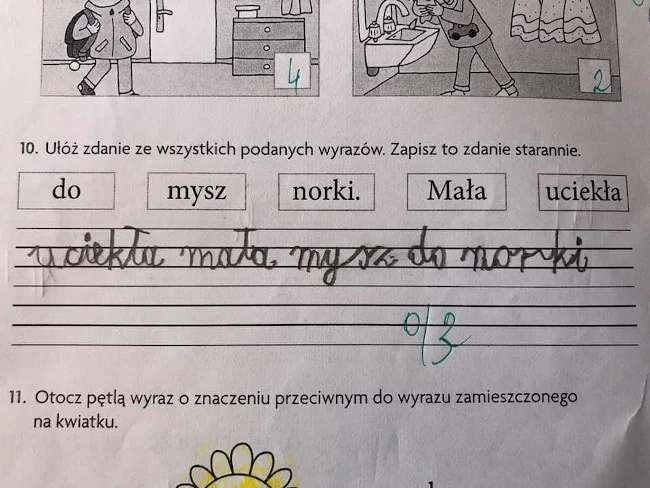 4 2
10. Ułóż zdanie ze wszystkich podanych wyrazów. Zapisz to zdanie starannie.
do mysz norki. Mała uciekła
uciekła mała mysz do norki
0/2
11. Otocz pętlą wyraz o znaczeniu przeciwnym do wyrazu zamieszczonego
na kwiatku.